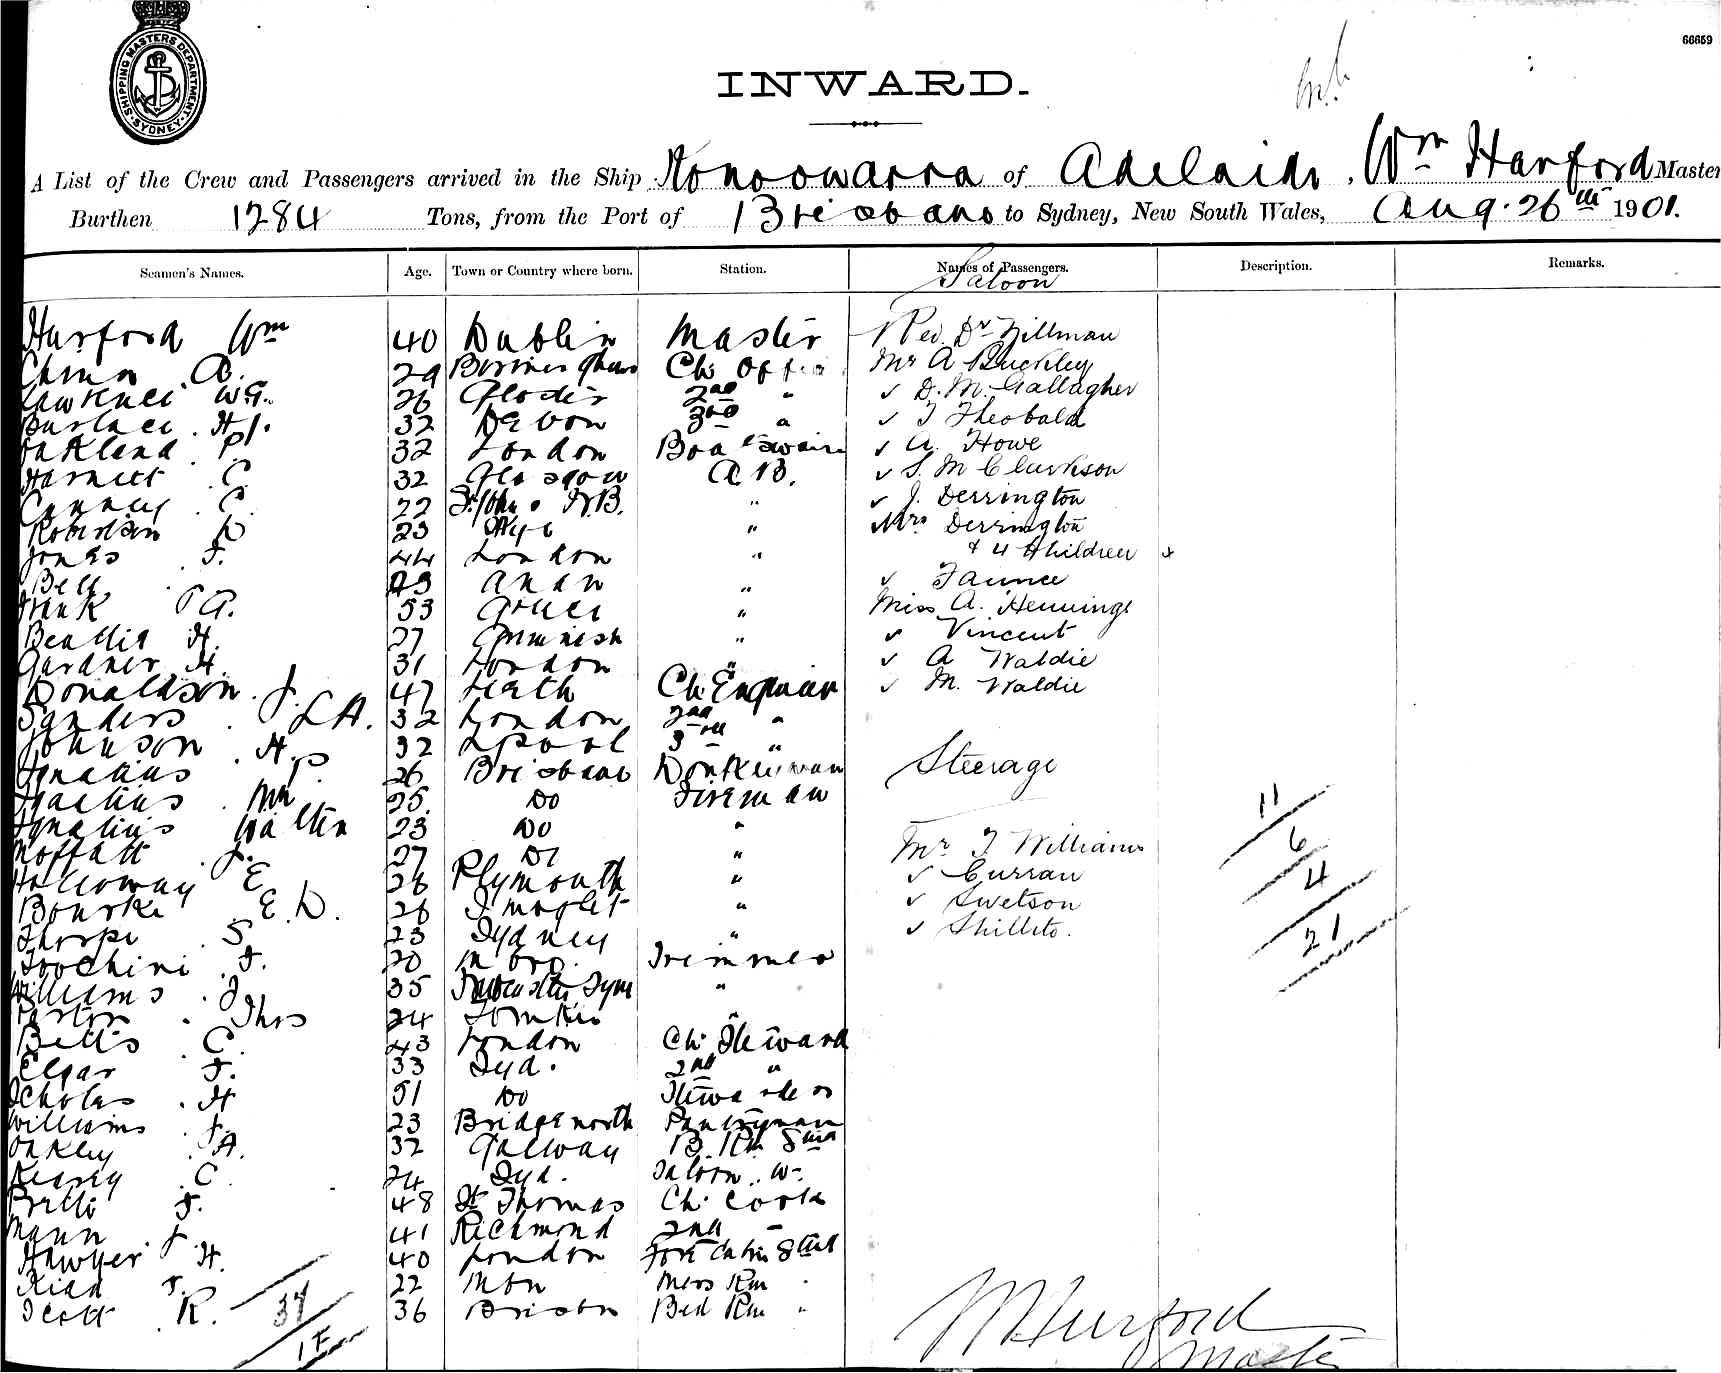 SHIPPING MASTERS DEPARTMENT
SYDNEY
66659
INWARD.
A List of the Crew and Passengers arrived in the Ship Konoowarra of Adelaide, Wm Harford Master
Burthen 1284 Tons, from the Port of Brisbane to Sydney, New South Wales, Aug. 26th 1901.
Seamen's Names. Age. Town or Country where born. Station. Names of Passengers. Description. Remarks.
Saloon
Harford Wm 40 Dublin Master Rev. Dr Hillman
A. 29 Ch Offic Mr A Buckley
Lawrence W G. 26 2nd " ✓ D. M. Gallagher
32 Devon 3rd " ✓ T Theobald
Oakland P. 32 London Boatswain ✓ A. Howe
Harnett C. 32 Glasgow A B. ✓ S. M Clarkson
C. 22 St Johns N.B. " ✓ J. Derrington
Robertson D 23 " Mrs Derrington
Jones F. 44 London " & 4 Children
Bell 23 " ✓ Faunce
Frank P A. 53 Greece " Miss A. Hennings
Beattie H. 27 " ✓ Vincent
Gardner H. 31 London " ✓ A Waldie
Donaldson J. 47 Leith Ch Engineer ✓ M. Waldie
Sanders L A. 32 London 2nd "
Johnson H. 32 Lpool 3rd "
Ignatius P. 26 Brisbane Donkeyman
Steerage
Ignatius Wm 25 Do Fireman
11
Ignatius Walter 23 Do "
6
Moffatt J. 27 Do " Mr T Williams
Holloway E 26 Plymouth " ✓ Curran
4
Bourke E. D. 26 " ✓ Swetson
Thorpe S 23 Sydney " ✓ Shillito.
21
Foochini F. 20 M bro. Trimmer
Williams J 35 Newcastle Tyne "
Thos 24 "
Betts C. 43 London Ch. Steward
Elgar F. 33 Syd. 2nd "
Scholes H 51 Do Stewardess
Williams J. 23 Bridgenorth Pantryman
Oakley A. 32 Galway B. Rm Swd
Kearey C 24 Syd. Saloon " W-
F. 48 St Thomas Ch. Cook
Mann J. 41 Richmond 2nd "
Hawyer H. 40 London Fore Cabin Stwd
Kidd F. 22 Mess Rm "
Scott R. 36 Bed Rm "
37
1 F
W Harford
Master